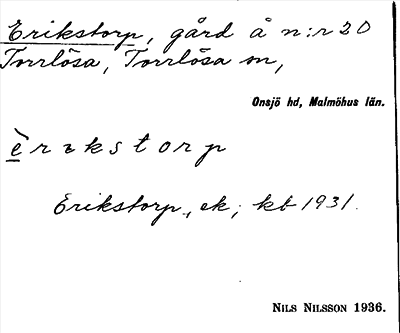 Erikstorp, gård å n:r 20
Torrlösa, Torrlösa sn,
Onsjö hd, Malmöhus län.
è̲rɩkstorp
Erikstorp, ek; kb 1931.
Nils Nilsson 1936.